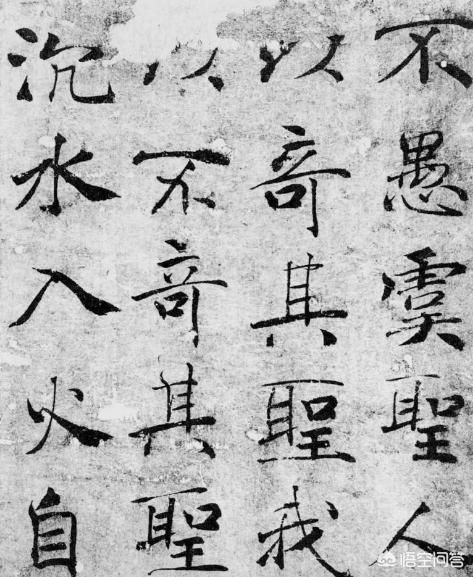 不愚虞聖人
以竒其聖我
以不竒其聖
沉水入火自
悟空问答